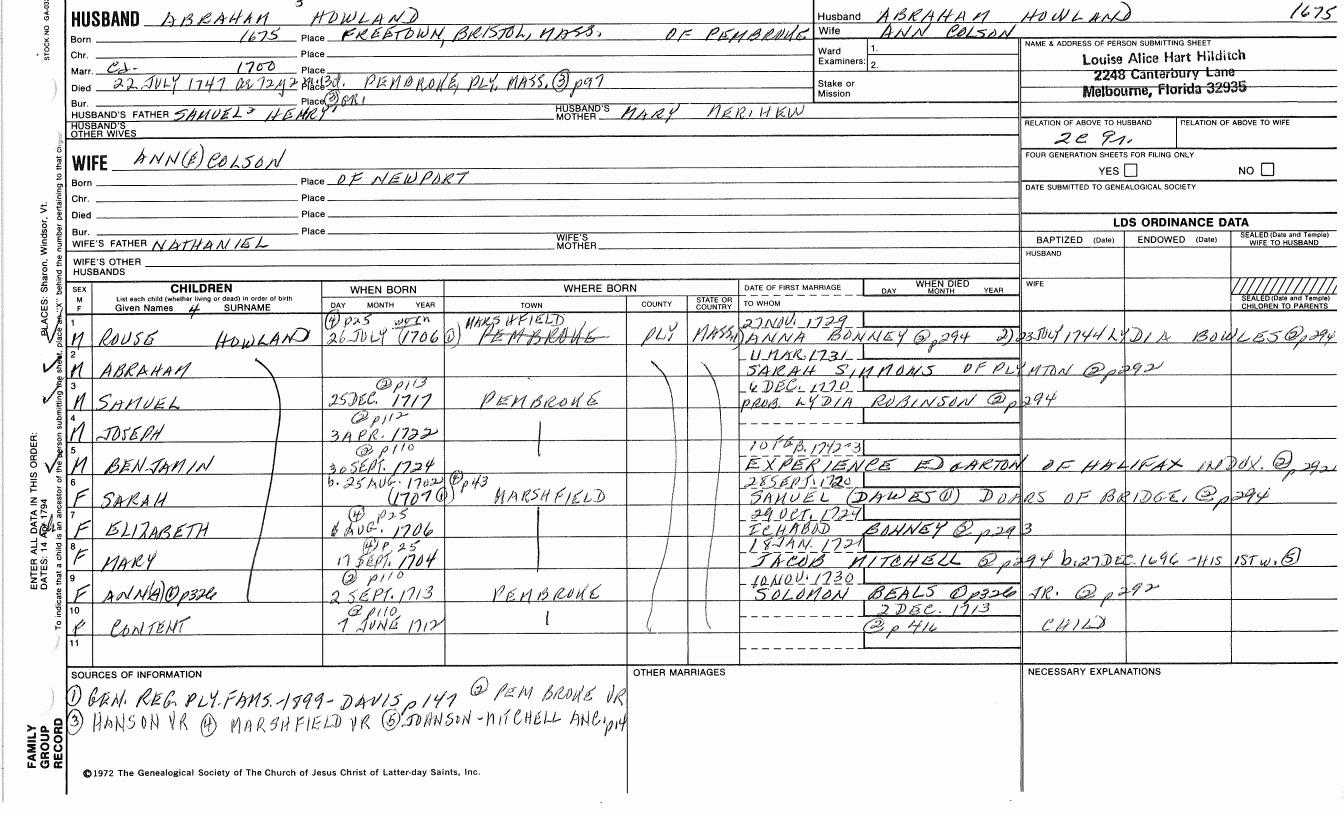 STOCK NO GA-03
3
HUSBAND ABRAHAM HOWLAND
Born 1675 Place FREETOWN, BRISTOL, MASS. OF PEMBROKE
Chr. Place
Marr. CA- 1700 Place
Died 22 JULY 1747 Place PEMBROKE, PLY, MASS. ③ p97
Bur. Place ③ GR1
HUSBAND'S FATHER SAMUEL³ HENRY¹ HUSBAND'S MOTHER MARY MERIHEW
HUSBAND'S OTHER WIVES
WIFE ANN(E) COLSON
Born Place OF NEWPORT
Chr. Place
Died Place
Bur. Place
WIFE'S FATHER NATHANIEL WIFE'S MOTHER
WIFE'S OTHER HUSBANDS
Husband ABRAHAM HOWLAND 1675
Wife ANN COLSON
Ward Examiners: 1. 2.
Stake or Mission
NAME & ADDRESS OF PERSON SUBMITTING SHEET
Louise Alice Hart Hilditch
2248 Canterbury Lane
Melbourne, Florida 32935
RELATION OF ABOVE TO HUSBAND RELATION OF ABOVE TO WIFE
2C 9r.
FOUR GENERATION SHEETS FOR FILING ONLY
YES NO
DATE SUBMITTED TO GENEALOGICAL SOCIETY
LDS ORDINANCE DATA
BAPTIZED (Date) ENDOWED (Date) SEALED (Date and Temple) WIFE TO HUSBAND
HUSBAND
WIFE
SEALED (Date and Temple) CHILDREN TO PARENTS
SEX M F CHILDREN WHEN BORN WHERE BORN DATE OF FIRST MARRIAGE WHEN DIED
List each child (whether living or dead) in order of birth
Given Names 4 SURNAME DAY MONTH YEAR TOWN COUNTY STATE OR COUNTRY TO WHOM DAY MONTH YEAR
1 ④ p25 MARSHFIELD 27 NOV. 1729
M ROUSE HOWLAND 26 JULY (1706 ①) PEMBROKE PLY MASS 1) ANNA BONNEY ② p294 2) 23 JULY 1744 LYDIA BOWLES ② p294
2 11 MAR. 1731
M ABRAHAM SARAH SIMMONS OF PLYMTON ② p292
3 ② p113 6 DEC. 1770
M SAMUEL 25 DEC. 1717 PEMBROKE PROB. LYDIA ROBINSON ② p294
4 ② p112
M JOSEPH 3 APR. 1722
5 ② p110 10 FEB. 1742-3
M BENJAMIN 30 SEPT. 1724 EXPERIENCE EDGARTON OF HALIFAX IN DUX. ② p292
6 b. 25 AUG. 1702 ④ p43 28 SEPT. 1720
F SARAH (1707 ①) MARSHFIELD SAMUEL (DAWES ①) DOARS OF BRIDGE. ② p294
7 ④ p25 29 OCT. 1724
F ELIZABETH 6 AUG. 1706 ICHABOD BONNEY ② p293
8 ④ p. 25 18 JAN. 1721
F MARY 17 SEPT. 1704 JACOB MITCHELL ② p294 b. 27 DEC. 1696 - HIS 1ST w. ⑤
9 ② p110 10 NOV. 1730
F ANN(A) ① p326 2 SEPT. 1713 PEMBROKE SOLOMON BEALS ① p326 JR. ② p292
10 ② p110 2 DEC. 1713
F CONTENT 7 JUNE 1712 ② p416 CHILD
11
SOURCES OF INFORMATION
① GEN. REG. PLY. FAMS. -1899- DAVIS p 147 ② PEMBROKE VR
③ HANSON VR ④ MARSHFIELD VR ⑤ JOHNSON-MITCHELL ANC. p14
OTHER MARRIAGES
NECESSARY EXPLANATIONS
©1972 The Genealogical Society of The Church of Jesus Christ of Latter-day Saints, Inc.
ENTER ALL DATA IN THIS ORDER:
DATES: 14 Apr 1794
PLACES: Sharon, Windsor, Vt.
To indicate that a child is an ancestor of the person submitting the sheet, place an "X" behind the number pertaining to that
FAMILY GROUP RECORD